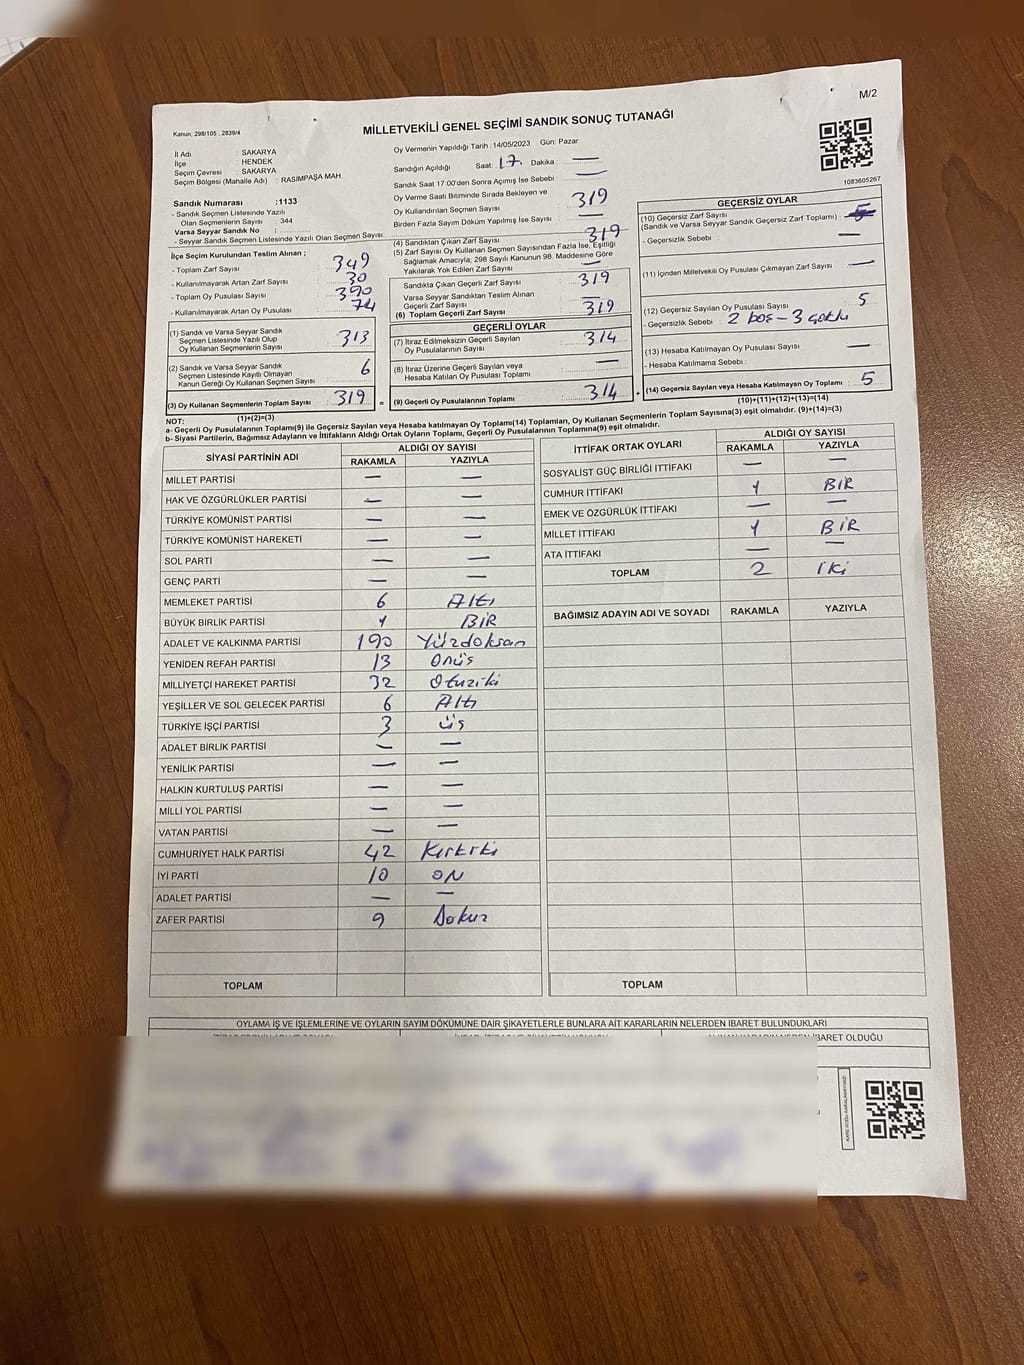 M/2
Kanun; 298/105 ; 2839/4
MİLLETVEKİLİ GENEL SEÇİMİ SANDIK SONUÇ TUTANAĞI
İl Adı SAKARYA
İlçe HENDEK
Seçim Çevresi : SAKARYA
Seçim Bölgesi (Mahalle Adı) : RASIMPAŞA MAH.
Sandık Numarası :1133
- Sandık Seçmen Listesinde Yazılı
Olan Seçmenlerin Sayısı : 344
Varsa Seyyar Sandık No :
- Seyyar Sandık Seçmen Listesinde Yazılı Olan Seçmen Sayısı:
İlçe Seçim Kurulundan Teslim Alınan ;
- Toplam Zarf Sayısı 349
- Kullanılmayarak Artan Zarf Sayısı 30
- Toplam Oy Pusulası Sayısı 390
- Kullanılmayarak Artan Oy Pusulası 74
(1) Sandık ve Varsa Seyyar Sandık
Seçmen Listesinde Yazılı Olup
Oy Kullanan Seçmenlerin Sayısı : 313
(2) Sandık ve Varsa Seyyar Sandık
Seçmen Listesinde Kayıtlı Olmayan
Kanun Gereği Oy Kullanan Seçmen Sayısı : 6
(3) Oy Kullanan Seçmenlerin Toplam Sayısı : 319
(1)+(2)=(3)
Oy Vermenin Yapıldığı Tarih :14/05/2023 Gün: Pazar
Sandığın Açıldığı Saat: 17. Dakika : —
Sandık Saat 17 00'den Sonra Açımış İse Sebebi : —
Oy Verme Saati Bitiminde Sırada Bekleyen ve
Oy Kullandırılan Seçmen Sayısı 319
Birden Fazla Sayım Döküm Yapılmış İse Sayısı : —
(4) Sandıktan Çıkan Zarf Sayısı 319
(5) Zarf Sayısı Oy Kullanan Seçmen Sayısından Fazla İse, Eşitliği
Sağlamak Amacıyla; 298 Sayılı Kanunun 98. Maddesine Göre
Yakılarak Yok Edilen Zarf Sayısı : —
Sandıkta Çıkan Geçerli Zarf Sayısı : 319
Varsa Seyyar Sandıktan Teslim Alınan
Geçerli Zarf Sayısı —
(6) Toplam Geçerli Zarf Sayısı : 319
GEÇERLİ OYLAR
(7) İtiraz Edilmeksizin Geçerli Sayılan
Oy Pusulalarının Sayısı : 314
(8) İtiraz Üzerine Geçerli Sayılan veya
Hesaba Katılan Oy Pusulası Toplamı : —
= (9) Geçerli Oy Pusulalarının Toplamı : 314
1083605267
GEÇERSİZ OYLAR
(10) Geçersiz Zarf Sayısı
(Sandık ve Varsa Seyyar Sandık Geçersiz Zarf Toplamı) :
- Geçersizlik Sebebi : —
(11) İçinden Milletvekili Oy Pusulası Çıkmayan Zarf Sayısı —
(12) Geçersiz Sayılan Oy Pusulası Sayısı 5
- Geçersizlik Sebebi : 2 boş - 3 çoklu
(13) Hesaba Katılmayan Oy Pusulası Sayısı —
- Hesaba Katılmama Sebebi :
+ (14) Geçersiz Sayılan veya Hesaba Katılmayan Oy Toplamı : 5
(10)+(11)+(12)+(13)=(14)
NOT:
a- Geçerli Oy Pusulalarının Toplamı(9) ile Geçersiz Sayılan veya Hesaba katılmayan Oy Toplamı(14) Toplamları, Oy Kullanan Seçmenlerin Toplam Sayısına(3) eşit olmalıdır. (9)+(14)=(3)
b- Siyasi Partilerin, Bağımsız Adayların ve İttifakların Aldığı Ortak Oyların Toplamı, Geçerli Oy Pusulalarının Toplamına(9) eşit olmalıdır.
SİYASİ PARTİNİN ADI ALDIĞI OY SAYISI
RAKAMLA YAZIYLA
MİLLET PARTİSİ — —
HAK VE ÖZGÜRLÜKLER PARTİSİ — —
TÜRKİYE KOMÜNİST PARTİSİ — —
TÜRKİYE KOMÜNİST HAREKETİ — —
SOL PARTİ — —
GENÇ PARTİ — —
MEMLEKET PARTİSİ 6 Altı
BÜYÜK BİRLİK PARTİSİ 1 BİR
ADALET VE KALKINMA PARTİSİ 190 Yüzdoksan
YENİDEN REFAH PARTİSİ 13 Onüş
MİLLİYETÇİ HAREKET PARTİSİ 32 Otuziki
YEŞİLLER VE SOL GELECEK PARTİSİ 6 Altı
TÜRKİYE İŞÇİ PARTİSİ 3 üş
ADALET BİRLİK PARTİSİ — —
YENİLİK PARTİSİ — —
HALKIN KURTULUŞ PARTİSİ — —
MİLLİ YOL PARTİSİ — —
VATAN PARTİSİ — —
CUMHURİYET HALK PARTİSİ 42 Kırkiki
İYİ PARTİ 10 ON
ADALET PARTİSİ — —
ZAFER PARTİSİ 9 Dokuz
TOPLAM
İTTİFAK ORTAK OYLARI ALDIĞI OY SAYISI
RAKAMLA YAZIYLA
SOSYALİST GÜÇ BİRLİĞİ İTTİFAKI — —
CUMHUR İTTİFAKI 1 BİR
EMEK VE ÖZGÜRLÜK İTTİFAKI — —
MİLLET İTTİFAKI 1 BİR
ATA İTTİFAKI — —
TOPLAM 2 İKİ
BAĞIMSIZ ADAYIN ADI VE SOYADI RAKAMLA YAZIYLA
TOPLAM
OYLAMA İŞ VE İŞLEMLERİNE VE OYLARIN SAYIM DÖKÜMÜNE DAİR ŞİKAYETLERLE BUNLARA AİT KARARLARIN NELERDEN İBARET BULUNDUKLARI
İBARET OLDUĞU